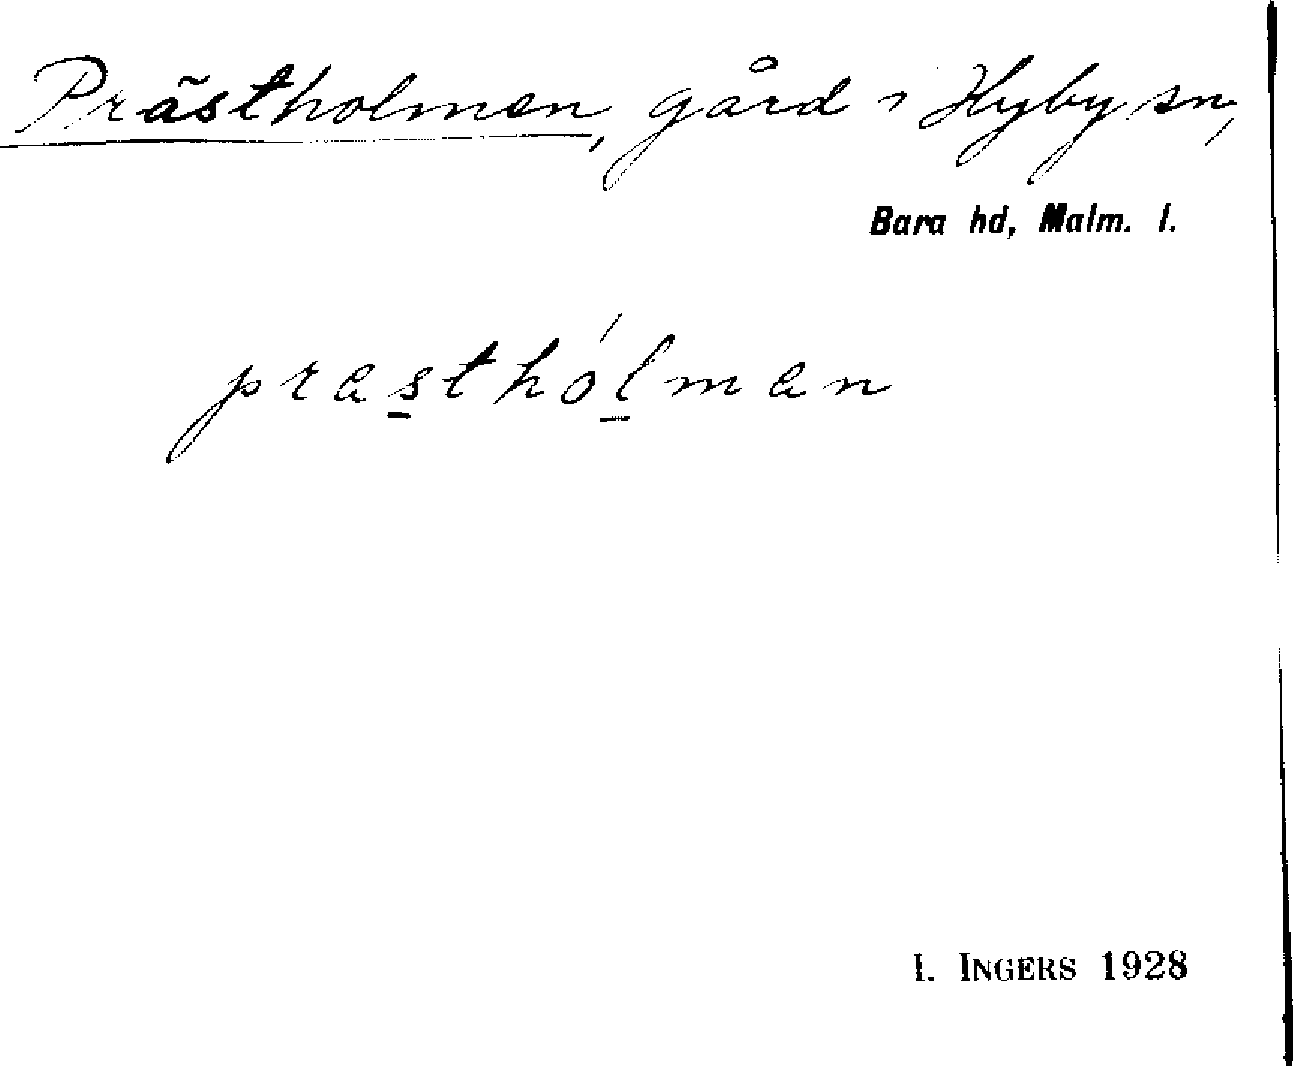 Prästholmen, gård i Hyby sn,
Bara hd, Malm. l.
præsthólmæn
I. INGERS 1928